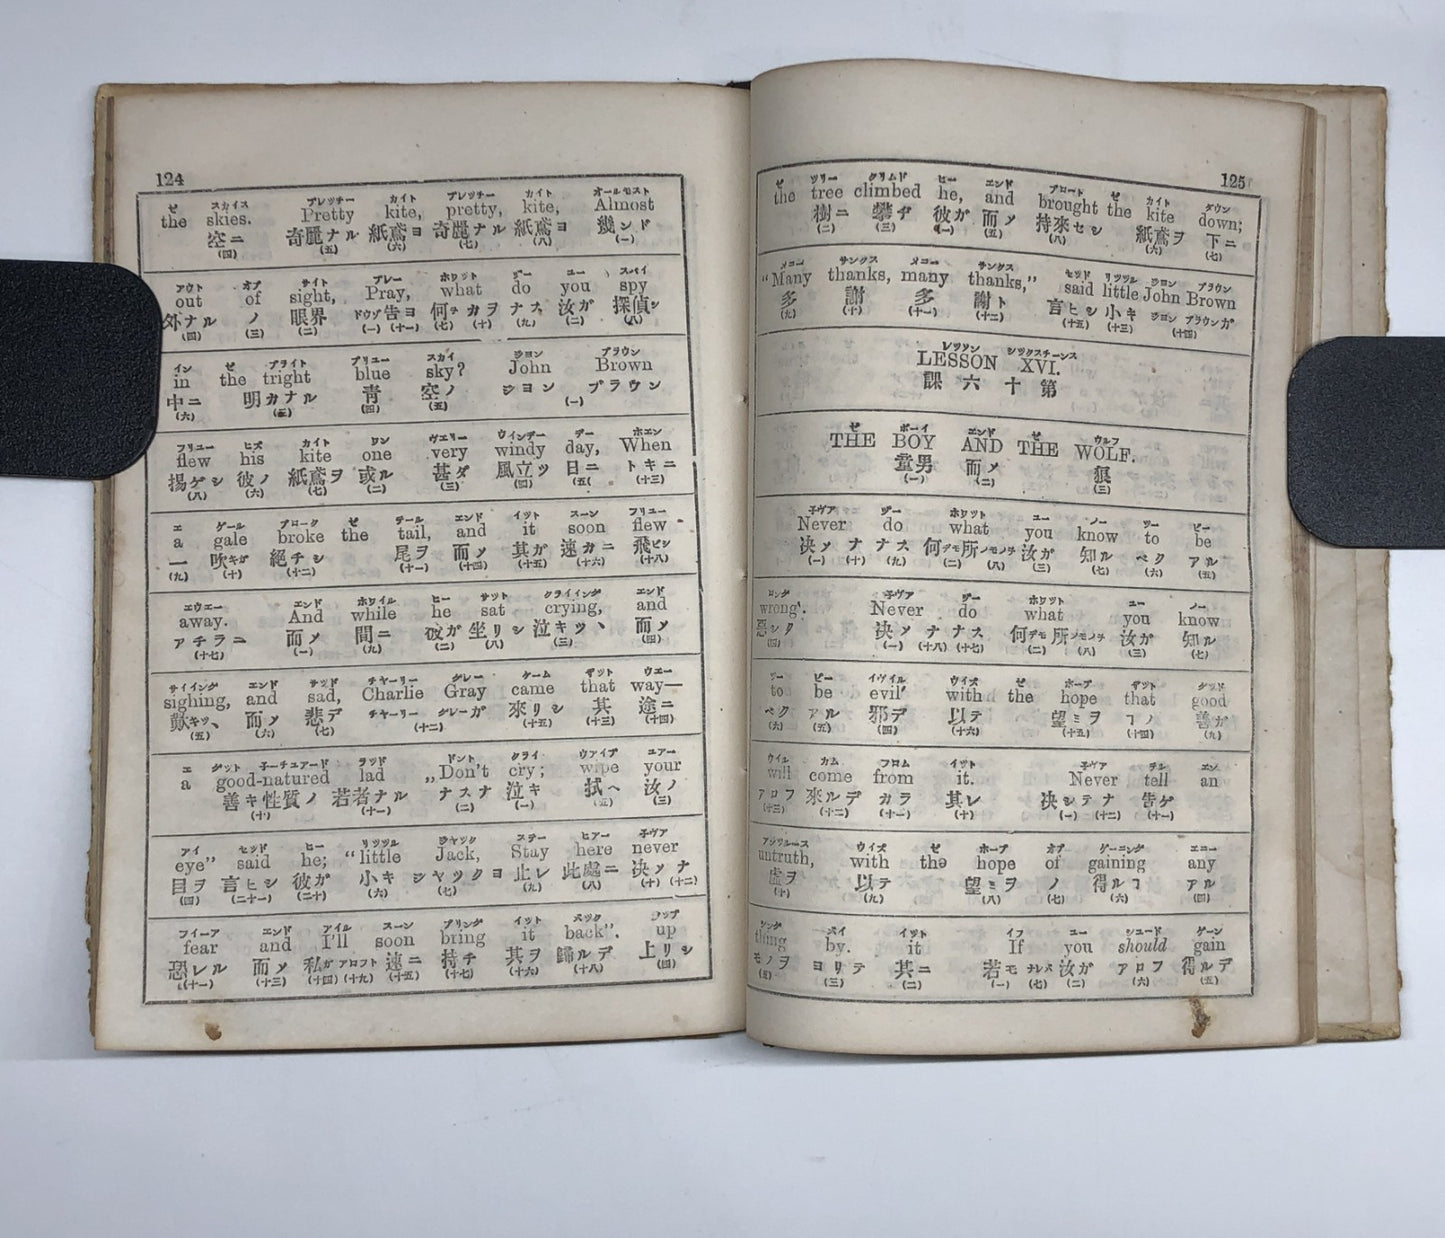 124
ゼ スカイス プレッチー カイト プレッチー カイト オールモスト
the skies. Pretty kite, pretty, kite, Almost
空ニ 奇麗ナル 紙鳶ヨ 奇麗ナル 紙鳶ヨ 幾ンド
(四) (五) (六) (七) (八) (一)
アウト オブ サイト プレー ホワット ヅー ユー スパイ
out of sight, Pray, what do you spy
外ナル ノ 眼界 ドウゾ告ヨ 何ヲ カヲ ナス 汝ガ 探偵シ
(四) (三) (二) (一) (十一) (七) (十) (九) (二) (八)
イン ゼ ブライト ブリユー スカイ ジヨン ブラウン
in the tright blue sky? John Brown
中ニ 明カナル 青 空ノ ジヨン ブラウン
(六) (三) (四) (五) (一)
フリユー ヒズ カイト ワン ヴエリー ウインデー デー ホエン
flew his kite one very windy day, When
揚ゲシ 彼ノ 紙鳶ヲ 或ル 甚ダ 風立ツ 日ニ トキニ
(八) (六) (七) (二) (三) (四) (五) (十三)
エ ゲール ブローク ゼ テール エンド イット スーン フリユー
a gale broke the tail, and it soon flew
一 吹キガ 絕チシ 尾ヲ 而メ 其ガ 速カニ 飛ビシ
(九) (十) (十二) (十一) (十四) (十五) (十六) (十八)
エウエー エンド ホワイル ヒー サット クライイング エンド
away. And while he sat crying, and
アチラニ 而メ 間ニ 彼ガ 坐リシ 泣キツヽ 而メ
(十七) (一) (九) (二) (八) (三) (四)
サイイング エンド サッド チヤーリー グレー ケーム ザット ウエー
sighing, and sad, Charlie Gray came that way—
歎キツヽ 而メ 悲デ チヤーリー グレーガ 來リシ 其 途ニ
(五) (六) (七) (十二) (十五) (十三) (十四)
エ グット子ーチユアード ラッド ドント クライ ウアイプ ユアー
a good-natured lad „Don't cry; wipe your
善キ性質ノ 若者ナル ナスナ 泣キ 拭ヘ 汝ノ
(十) (十一) (二) (一) (五) (三)
アイ セッド ヒー リツツル ジヤック ステー ヒアー 子ヴア
eye” said he; “little Jack, Stay here never
目ヲ 言ヒシ 彼ガ 小キ ジヤックヨ 止レ 此處ニ 决メナ
(四) (二十一) (二十) (六) (七) (九) (八) (十) (十二)
フイーア エンド アイル スーン ブリング イット バック アップ
fear and I'll soon bring it back”. up
恐レル 而メ 私ガ アロフト 速ニ 持チ 其ヲ 歸ルデ 上リシ
(十一) (十三) (十四) (十九) (十五) (十七) (十六) (十八) (四)
125
ゼ ツリー クリムド ヒー エンド ブロート ゼ カイト ダウン
the tree climbed he, and brought the kite down;
樹ニ 攀ヂ 彼ガ 而メ 持來セシ 紙鳶ヲ 下ニ
(二) (三) (一) (五) (八) (六) (七)
メニー サンクス メニー サンクス セッド リツツル ジヨン ブラウン
“Many thanks, many thanks,” said little John Brown
多 謝 多 謝ト 言ヒシ 小キ ジヨン ブラウンガ
(九) (十) (十一) (十二) (十五) (十三) (十四)
レツソン シツクスチーンス
LESSON XVI.
課 六 十 第
ゼ ボーイ エンド ゼ ウルフ
THE BOY AND THE WOLF.
童男 而メ 狼
(一) (二) (三)
子ヴア ヅー ホワット ユー ノー ツー ビー
Never do what you know to be
决メナ ナス 何デモ所ノモノチ 汝ガ 知ル ベク アル
(一) (十) (九) (二) (八) (三) (七) (六) (五)
ロング 子ヴア ヅー ホワット ユー ノー
wrong. Never do what you know
惡シク 决メナ ナス 何デモ所ノモノチ 汝ガ 知ル
(四) (一) (十八) (十七) (二) (八) (三) (七)
ツー ビー イヴイル ウイズ ゼ ホープ ザット グッド
to be evil with the hope that good
ベク アル 邪デ 以テ 望ミヲ ヿノ 善ガ
(六) (五) (四) (十六) (十五) (十四) (九)
ウイル カム フロム イット 子ヴア テル エン
will come from it. Never tell an
アロフ 來ルデ カラ 其レ 决シテナ 告ゲ
(十三) (十二) (十一) (十) (一) (十二) (十一)
アンツルース ウイズ ゼ ホープ オブ ゲーニング エニー
untruth, with the hope of gaining any
虛ヲ 以テ 望ミヲ ノ 得ルヿ アル
(十) (九) (八) (七) (六) (四)
シング バイ イット イフ ユー シユード ゲーン
thing by. it If you should gain
モノヲ ヨリテ 其ニ 若モ ナレメ 汝ガ アロフ 得ルデ
(五) (三) (二) (一) (七) (二) (六) (五)